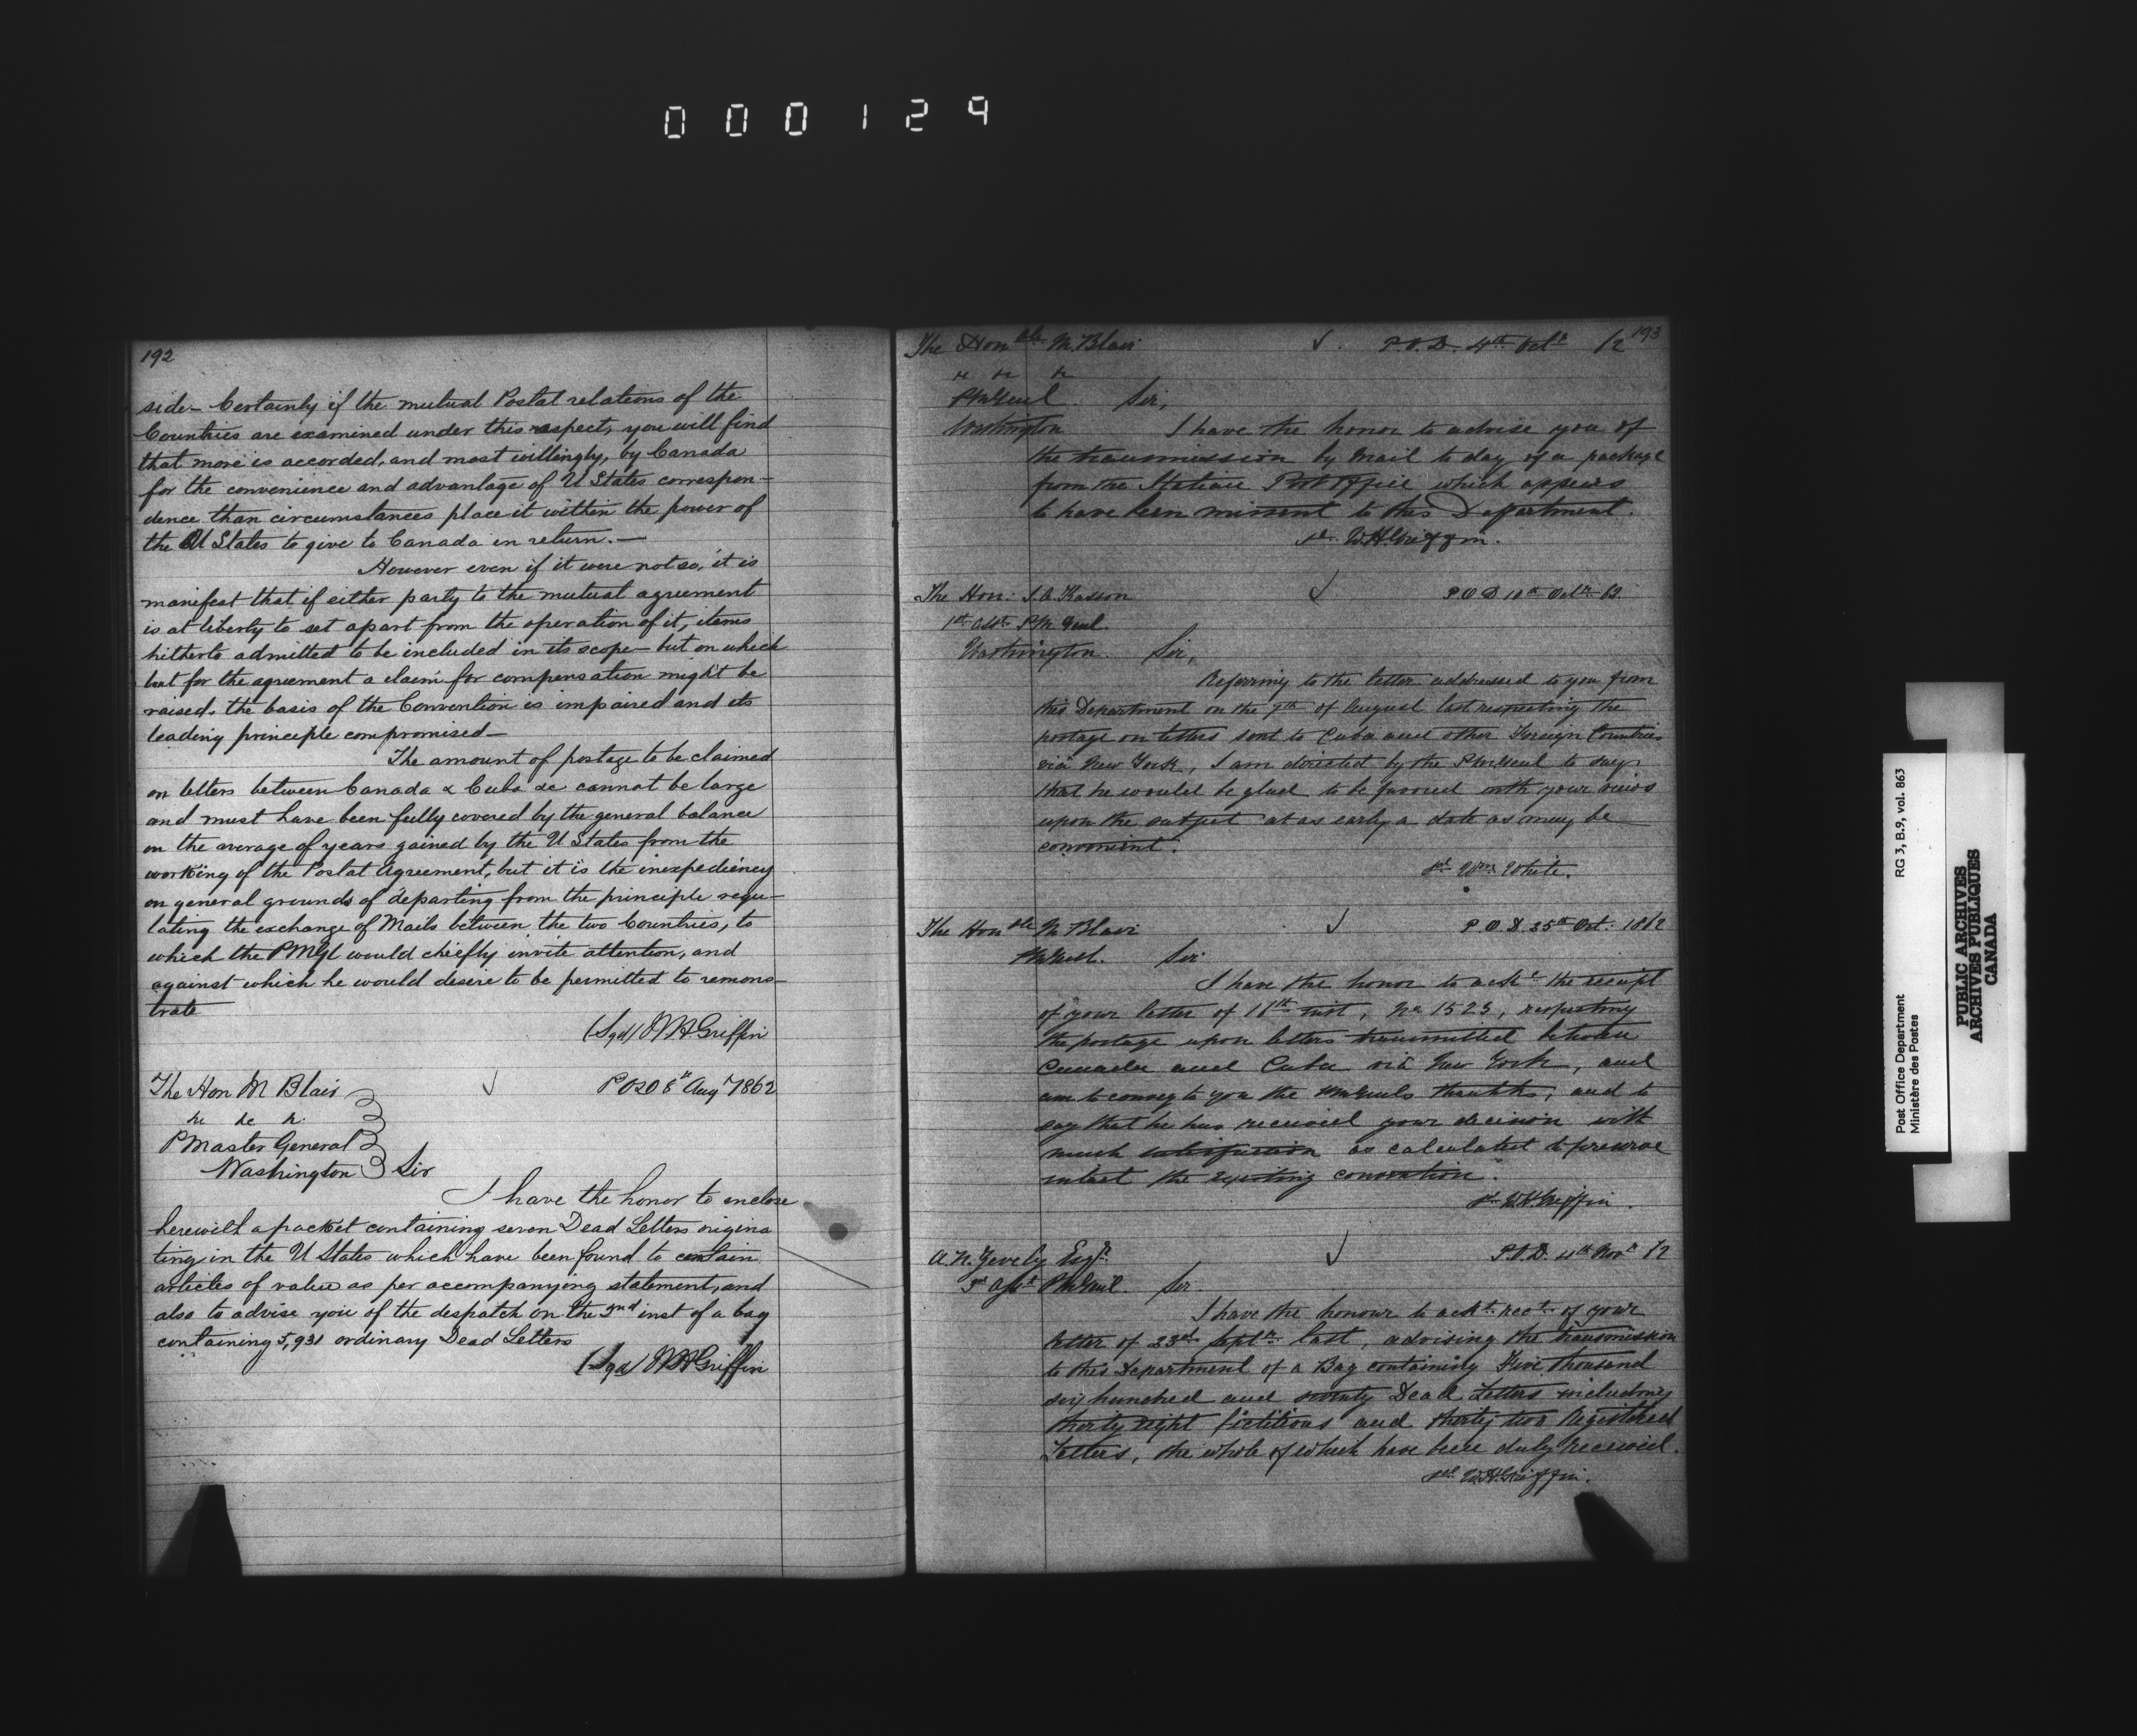 000129
192
side – Certainly if the mutual Postal relations of the
Countries are examined under this respect, you will find
that more is accorded, and most willingly, by Canada
for the convenience and advantage of U States correspon-
dence than circumstances place it within the power of
the U States to give to Canada in return. —
However even if it were not so, it is
manifest that if either party to the mutual agreement
is at liberty to set apart from the operation of it, items
hitherto admitted to be included in its scope – but on which
but for the agreement a claim for compensation might be
raised, the basis of the Convention is impaired and its
leading principle compromised –
The amount of postage to be claimed
on letters between Canada & Cuba &c cannot be large
and must have been fully covered by the general balance
on the average of years gained by the U States from the
working of the Postal Agreement, but it is the inexpediency
on general grounds of departing from the principle regu-
lating the exchange of Mails between the two Countries, to
which the PMGl would chiefly invite attention, and
against which he would desire to be permitted to remons-
trate
(Sgd) W H Griffin
The Hon M Blair P O D 8th Augt 1862
&c &c &c
P Master General
Washington Sir
I have the honor to enclose
herewith a packet containing seven Dead Letters origina
ting in the U States which have been found to contain
articles of value as per accompanying statement, and
also to advise you of the despatch on the 2nd inst of a bag
containing 5,931 ordinary Dead Letters
(Sgd) W H Griffin
193
The Honble M. Blair P. O. D. 4th Octr /2
&c &c &c
PMGenl Sir,
Washington I have the honor to advise you of
the transmission by Mail to day of a package
from the Italian Post Office which appears
to have been missent to this Department.
sd W.H. Griffin.
The Hon: J. A. Kasson P O D 10th Octr 62.
1st Asst P M Genl.
Washington. Sir,
Referring to the letter addressed to you from
this Department on the 7th of August last respecting the
postage on letters sent to Cuba and other Foreign Countries
via New York, I am directed by the PMGenl to say
that he would be glad to be favored with your views
upon the subject at as early a date as may be
convenient.
sd Wm White.
The Honble M Blair P O D 25th Oct. 1862
PMGenl. Sir
I have the honor to ackn the receipt
of your letter of 11th inst, No 1523, respecting
the postage upon letters transmitted between
Canada and Cuba via New York, and
am to convey to you the PMGenls thanks, and to
say that he has received your decision with
much satisfaction as calculated to preserve
intact the existing convention.
sd W.H. Griffin.
A. N. Zevely Esqr P.O.D. 11th Novr /2
3rd Asst PMGenl. Sir.
I have the honour to ackt rect of your
letter of 23rd Septr last, advising the transmission
to this Department of a Bag containing Five thousand
six hundred and seventy Dead Letters including
thirty eight fictitious and thirty two Registered
Letters, the whole of which have been duly received.
sd W.H. Griffin.
Post Office Department RG 3, B.9, vol. 863
Ministère des Postes
PUBLIC ARCHIVES
ARCHIVES PUBLIQUES
CANADA